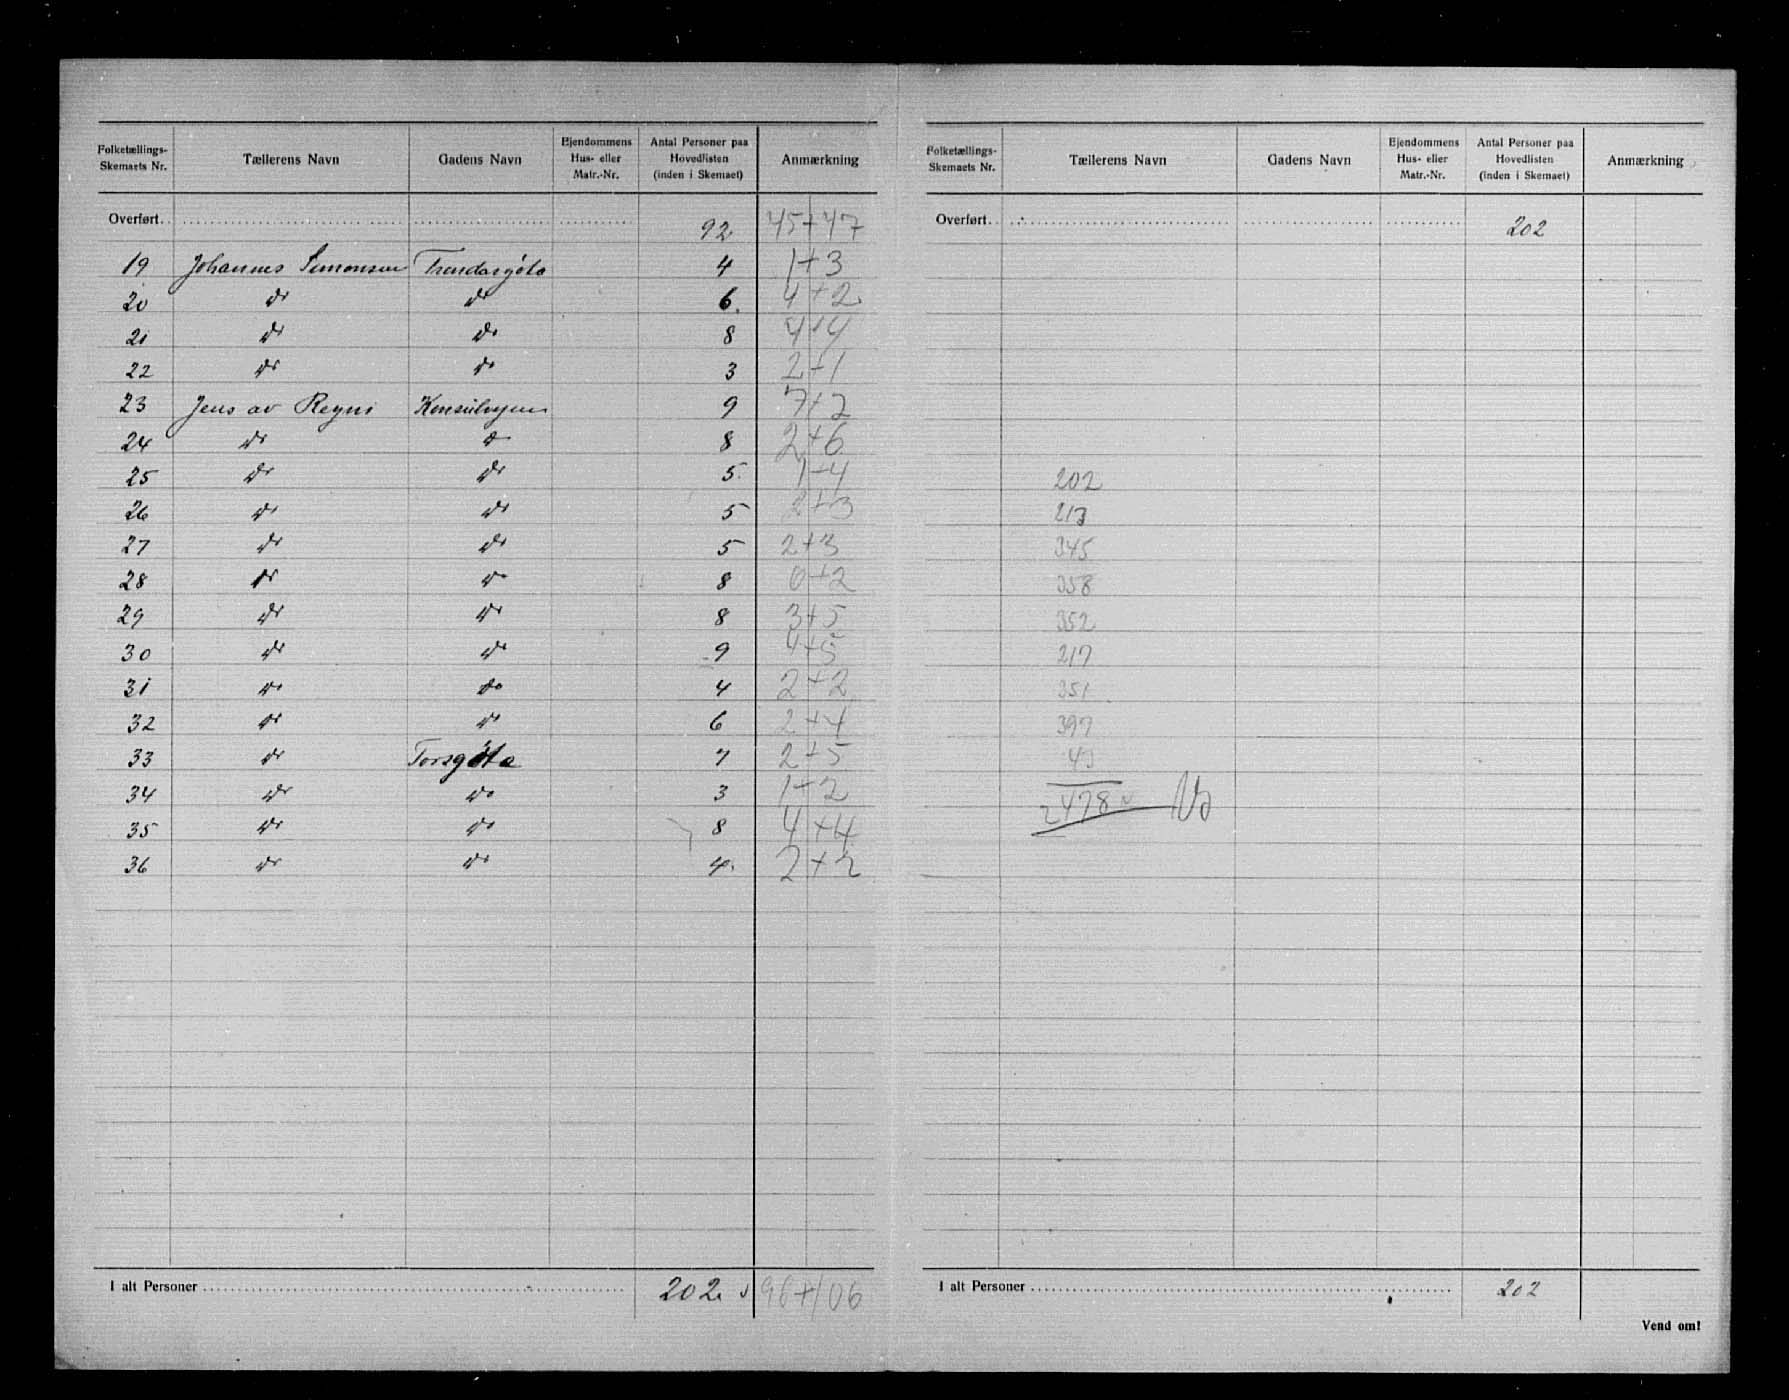 Folketællings-Skemaets Nr. Tællerens Navn Gadens Navn Ejendommens Hus- eller Matr.-Nr. Antal Personer paa Hovedlisten (inden i Skemaet) Anmærkning
Overført 92 45+47
19 Johannes Simonsen Trondargøta 4 1+3
20 do do 6. 4+2
21 do do 8 4+4
22 do do 3 2+1
23 Jens av Reyni 9 7+2
24 do do 8 2+6
25 do do 5 1+4
26 do do 5 2+3
27 do do 5 2+3
28 do do 8 +2
29 do do 8 3+5
30 do do 9 4+5
31 do do 4 2+2
32 do do 6 2+4
33 do Torsgøta 7 2+5
34 do do 3 1+2
35 do do 8 4+4
36 do do 4. 2+2
I alt Personer 202 96+106
Folketællings-Skemaets Nr. Tællerens Navn Gadens Navn Ejendommens Hus- eller Matr.-Nr. Antal Personer paa Hovedlisten (inden i Skemaet) Anmærkning
Overført 202
202
213
345
358
352
217
351
397
43
2478
I alt Personer 202
Vend om!